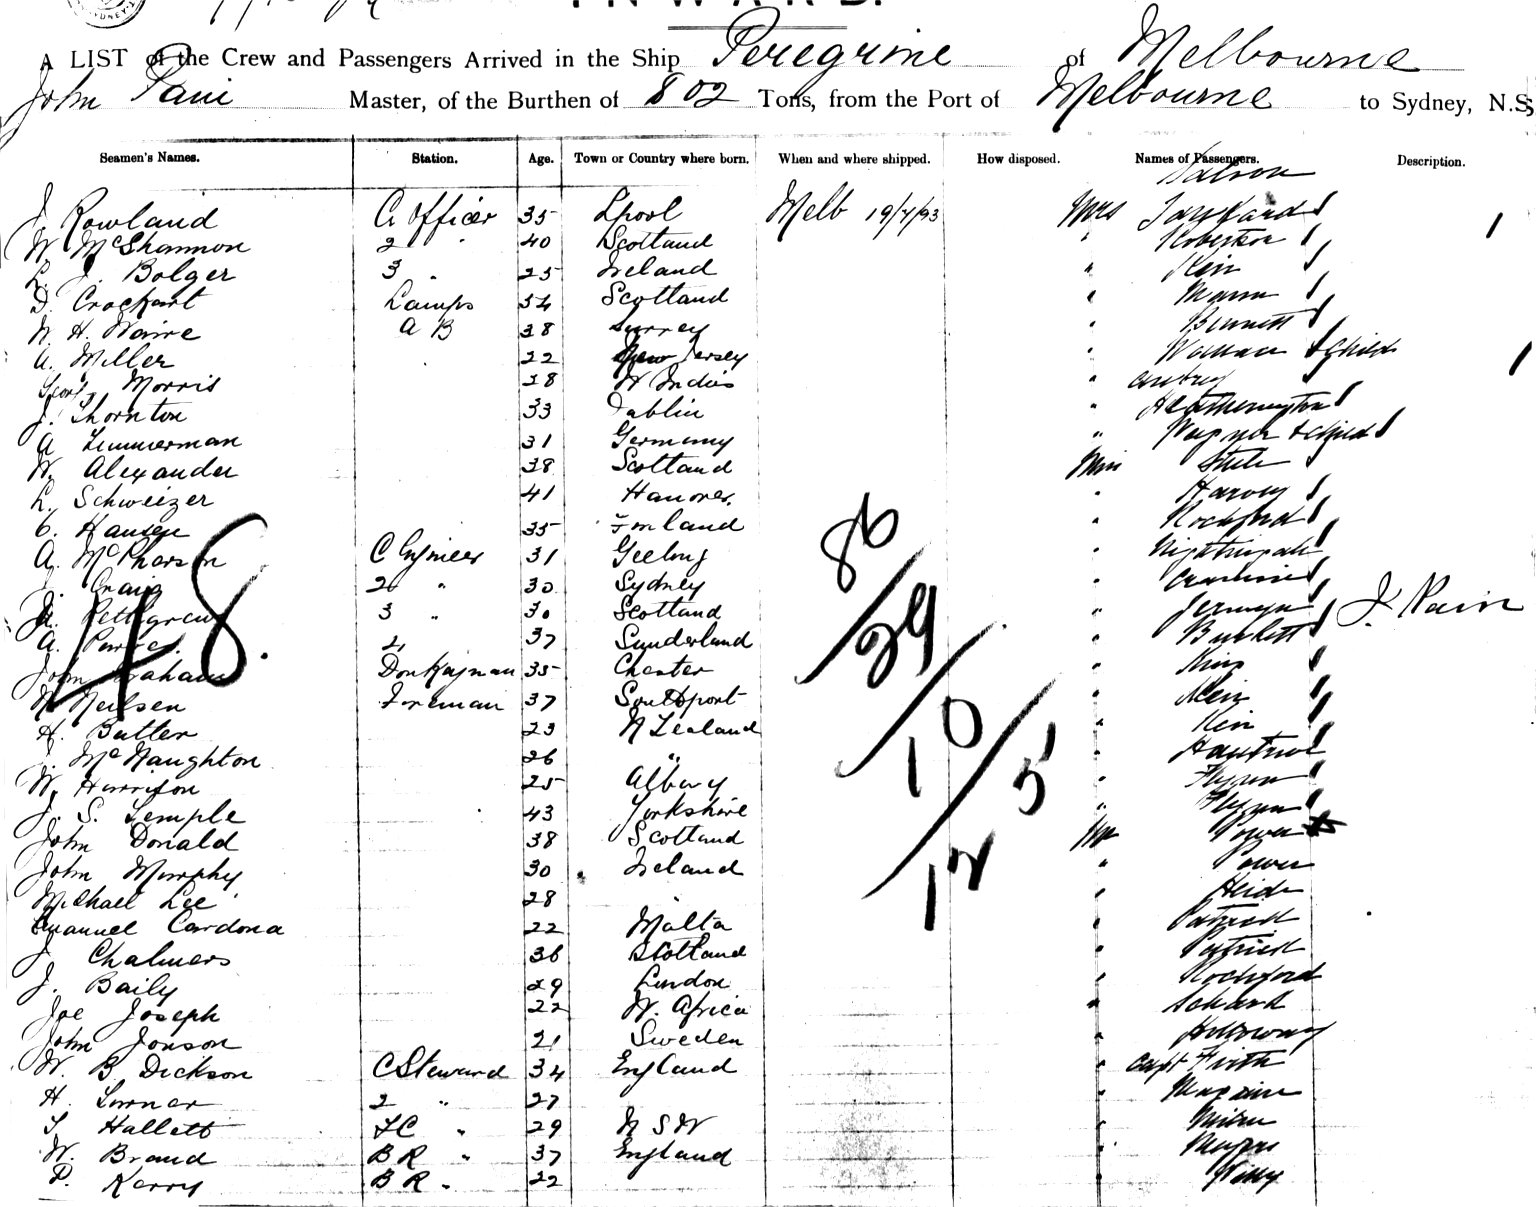 INWARD.
A LIST of the Crew and Passengers Arrived in the Ship Peregrine of Melbourne
John Pain Master, of the Burthen of 802 Tons, from the Port of Melbourne to Sydney, N.S.
Seamen's Names. Station. Age. Town or Country where born. When and where shipped. How disposed. Names of Passengers. Description.
Saloon
J. Rowland C Officer 35 Lpool Melb 19/7/93 Mrs
W McShannon 2 " 40 Scotland " Robertson
L. J. Bolger 3 " 25 Ireland "
D. Crockart Lamps 34 Scotland " Mann
W. H. Waire A B 38 Surrey " Bennett
A. Miller 22 New Jersey " Wallace & Child
Morris 28 W Indies " Aubrey
J. Thornton 33 Dublin " Heatherington
A Zimmerman 31 Germany " Wagner & Child
W. Alexander 38 Scotland Miss Steele
L. Schweizer 41 Hanover " Harvey
C. Hansen 35 Finland " Rochford
A. McPherson C Engineer 31 Geelong " Nightingale
J. Craig 2 " 30 Sydney "
Pettigrew 3 " 30 Scotland " Jermyn J. Pain
A. 4 37 Sunderland " Burkett
John Graham Donkeyman 35 Chester " King
N Neilsen Foreman 37 Southport "
H. Butler 23 N Zealand "
J. McNaughton 26 " "
W. Harrison 25 Albury " Flynn
J. S. Temple 43 Yorkshire " Flynn
John Donald 38 Scotland Mr Power
John Murphy 30 Ireland " Power
Michael Lee 28 "
Emanuel Cardona 22 Malta " Patrick
J Chalmers 36 Scotland " Patrick
J. Baily 29 London " Rochford
Joe Joseph 22 W. Africa "
John Jonson 21 Sweden " Holloway
W. B Dickson C Steward 34 England " Capt Frith
H. Turner 2 " 27 "
T Hallett F C " 29 N S W "
W. Brand B R " 37 England "
P. Kerry B R " 22 "
48.
86
29
10
5
12